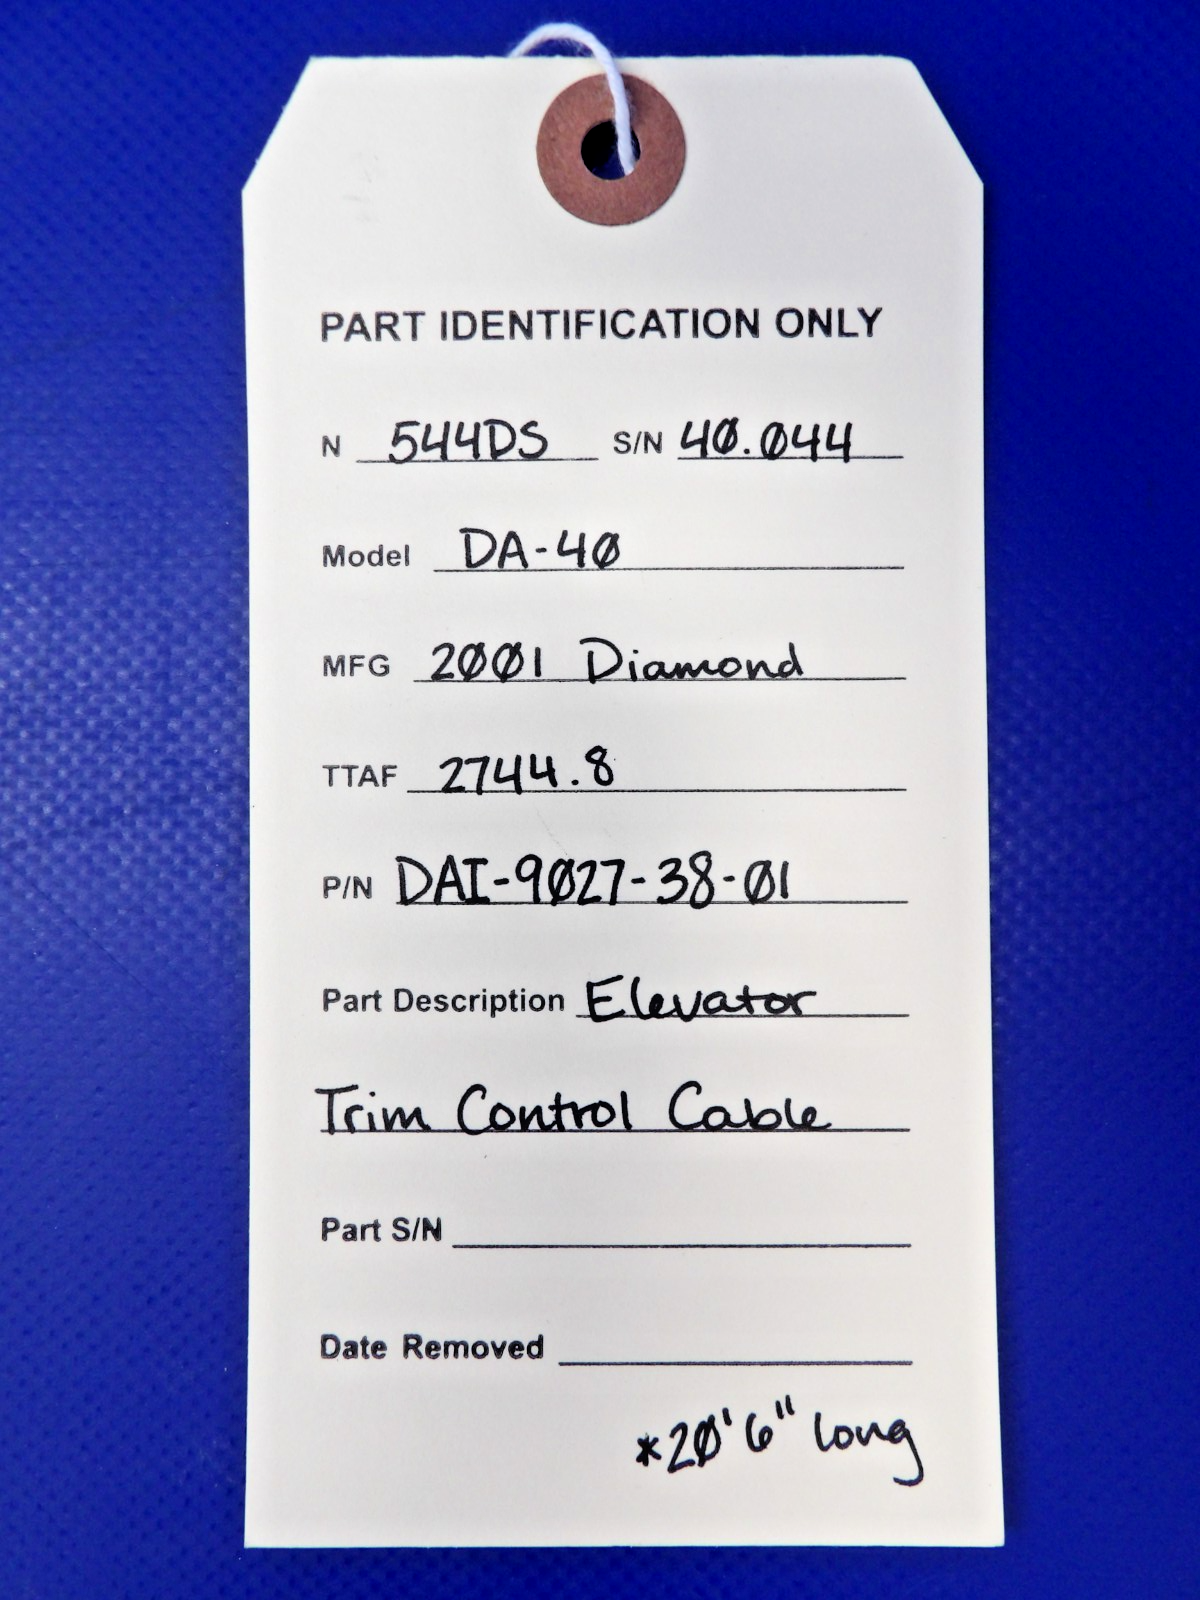 PART IDENTIFICATION ONLY
N 544DS S/N 40.044
Model DA-40
MFG 2001 Diamond
TTAF 2744.8
P/N DAI-9027-38-01
Part Description Elevator
Trim Control Cable
Part S/N
Date Removed
*20'6" long